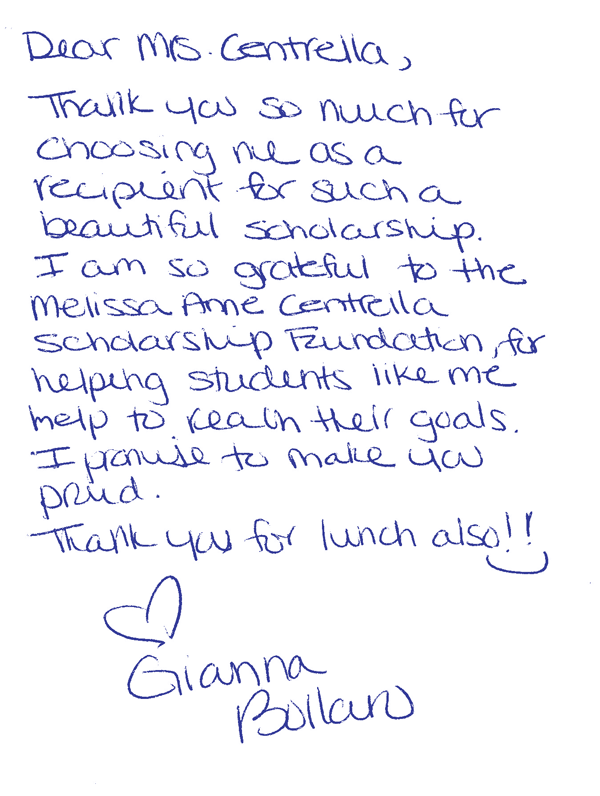 Dear Mrs. Centrella,
Thank you so much for
choosing me as a
recipient for such a
beautiful scholarship.
I am so grateful to the
Melissa Anne Centrella
Scholarship Foundation, for
helping students like me
help to reach their goals.
I promise to make you
proud.
Thank you for lunch also!!
Gianna
Bollaro